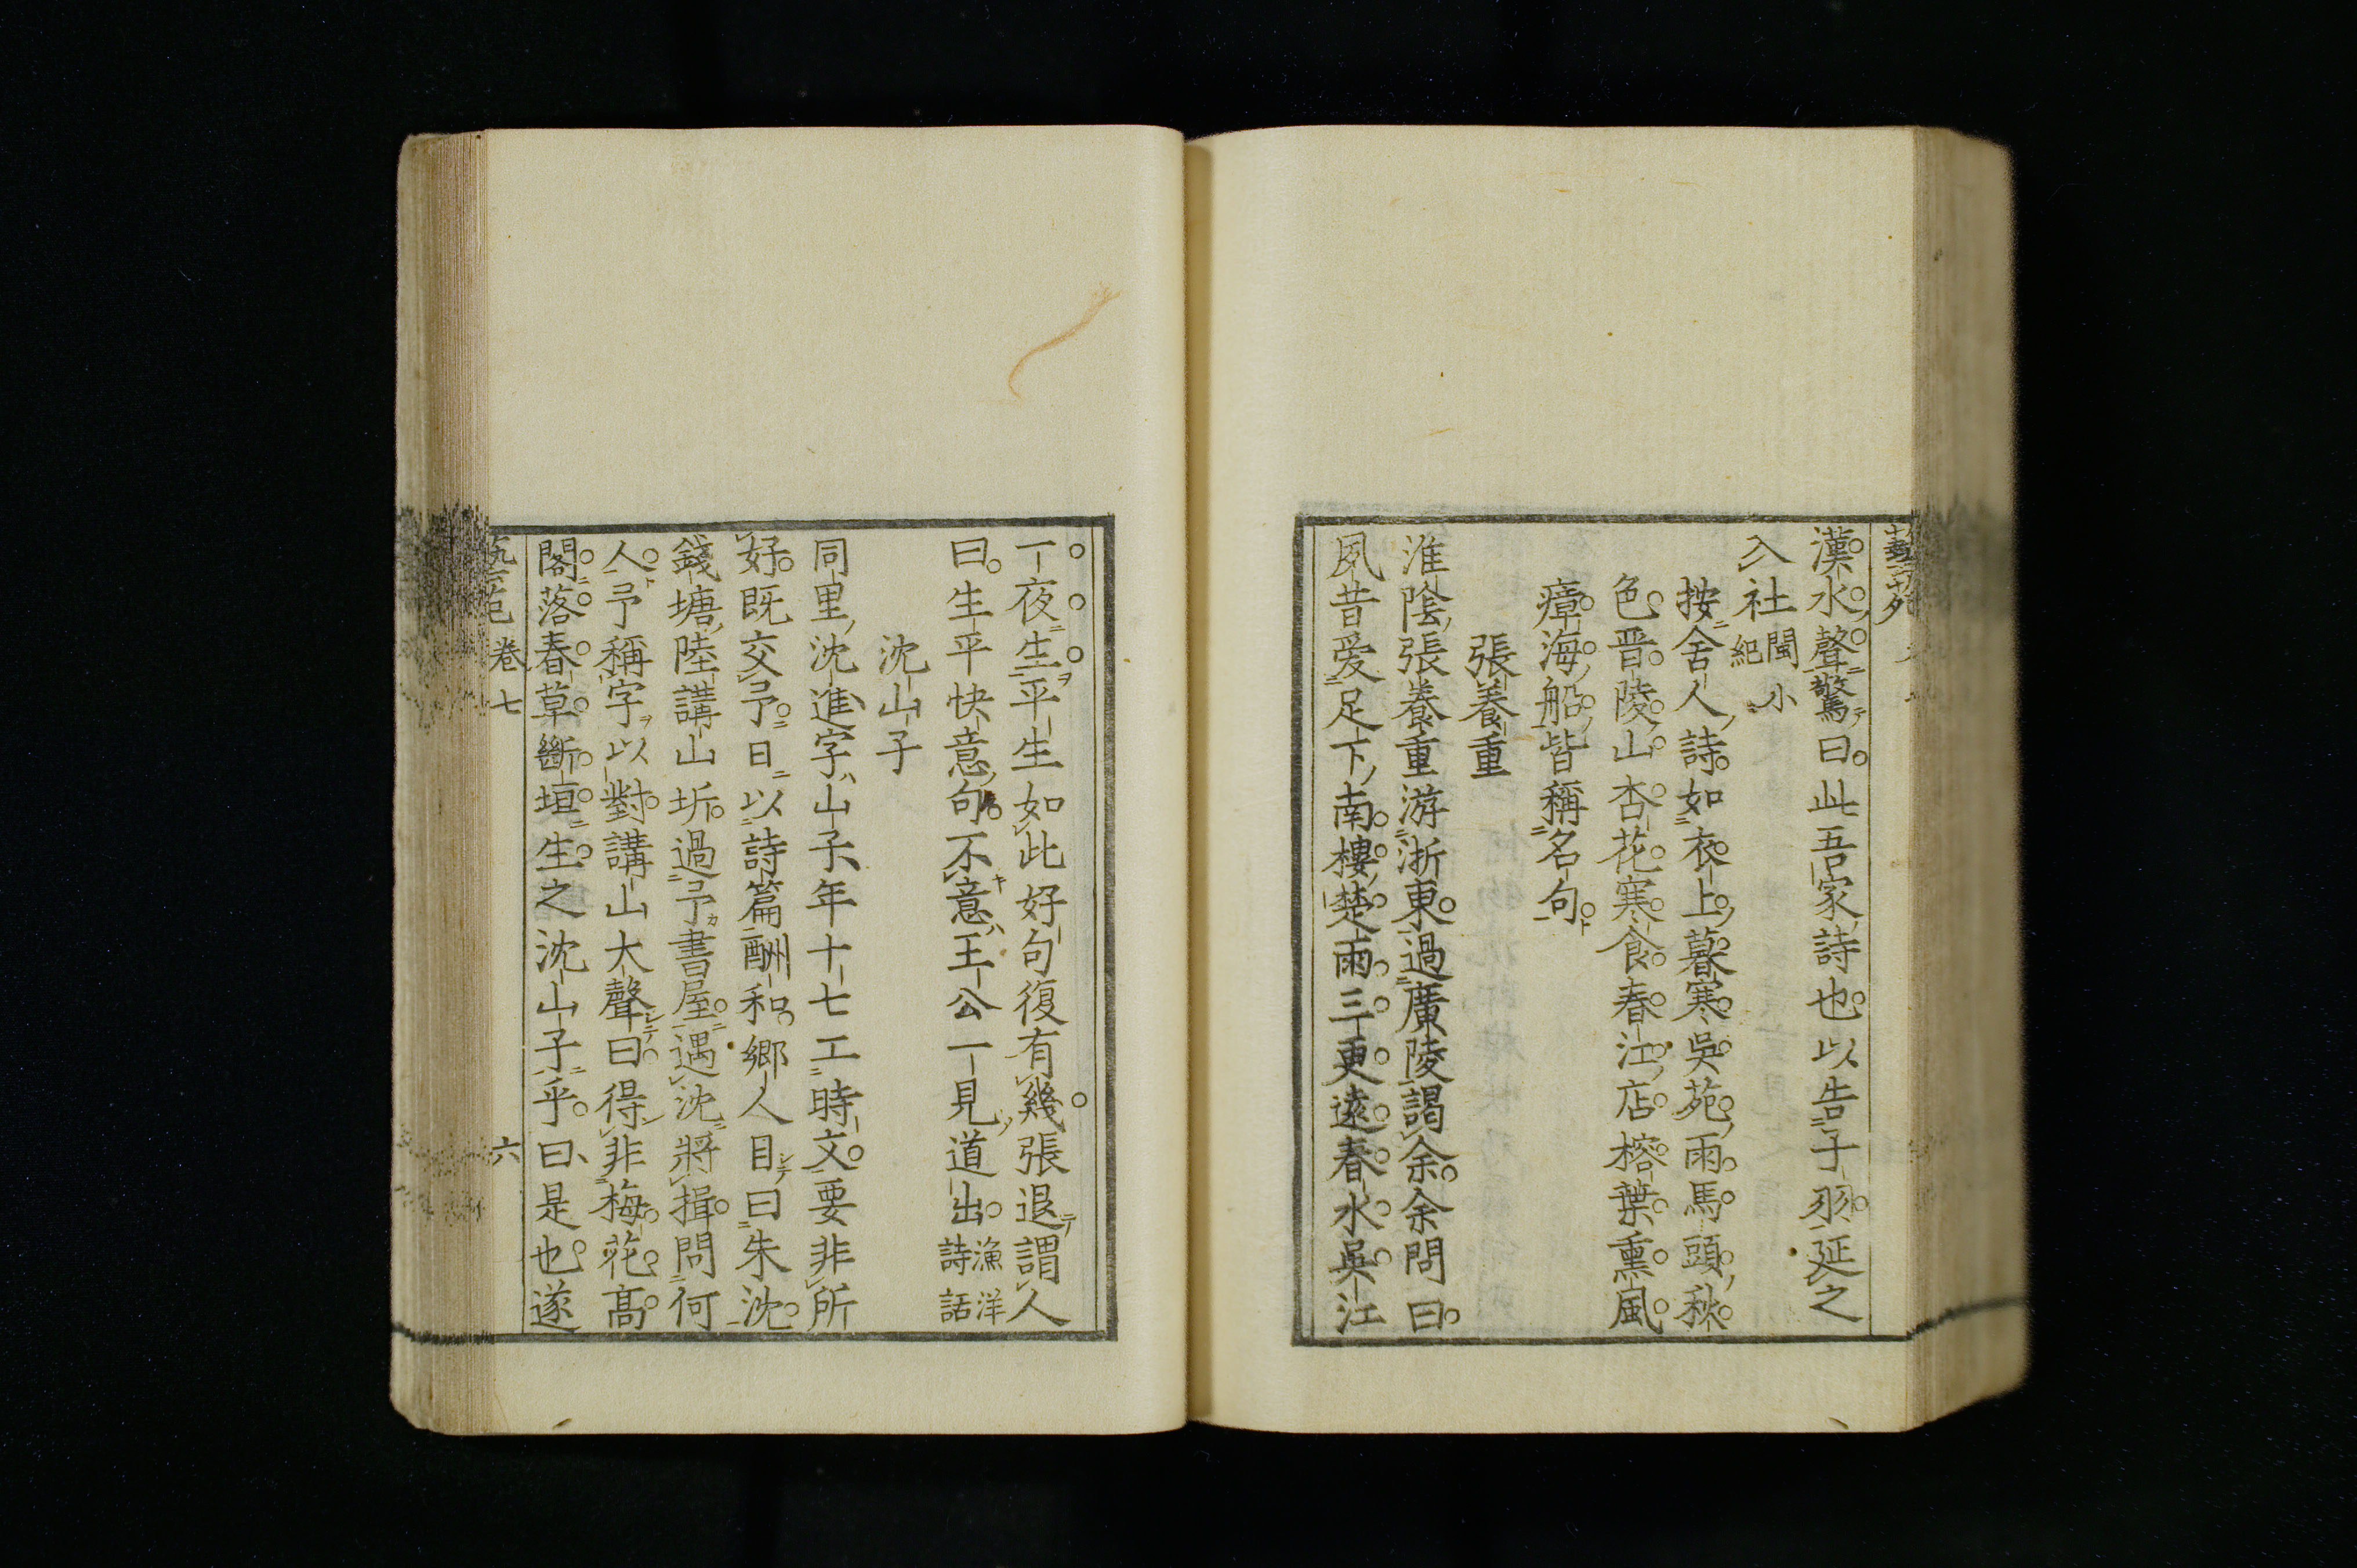 漢水聲驚曰此吾家詩也以告子羽延之
入社閩小紀
按舍人詩如衣上暮寒吳苑雨馬頭秋
色晋陵山杏花寒食春江店榕葉熏風
瘴海船皆稱名句
張養重
淮陰張養重游浙東過廣陵謁余余問曰
夙昔愛足下南樓楚雨三更遠春水吳江
一夜生平生如此好句復有幾張退謂人
曰生平快意句不意王公一見道出漁洋詩話
沈山子
同里沈進字山子年十七工時文要非所
好既交予日以詩篇酬和鄉人目曰朱沈
錢塘陸講山圻過予書屋遇沈將揖問何
人予稱字以對講山大聲曰得非梅花高
閣落春草斷垣生之沈山子乎曰是也遂
藝苑 卷七 六